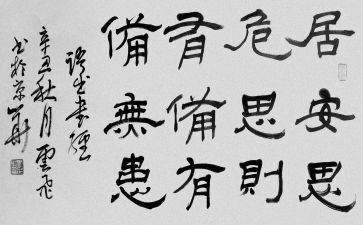 居安思
危思則
有備有
備無患
語出書經
辛丑秋月雲飛
書於京華